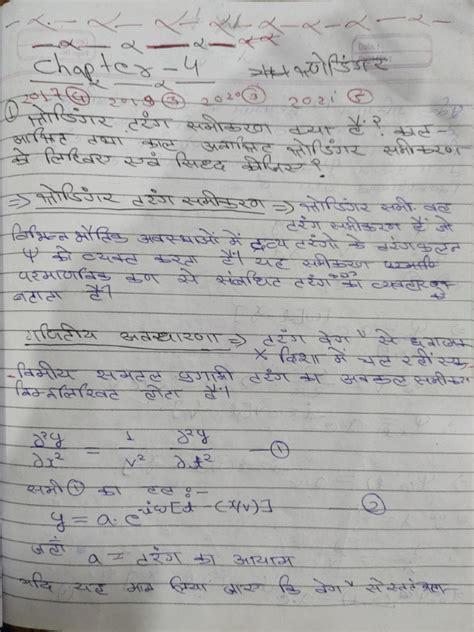 Chapter-4 श्रोडिंगर
2017 (4) 2019 (3) 2020 (3) 2021 (5)
① श्रोडिंगर तरंग समीकरण क्या है? काल-
आश्रित तथा काल अनाश्रित श्रोडिंगर समीकरण
को लिखिए एवं सिध्द कीजिए?
⇒ श्रोडिंगर तरंग समीकरण ⇒ श्रोडिंगर समी. वह
तरंग समीकरण हैं जो
विभिन्न भौतिक अवस्थाओं में द्रव्य तरंगो के तरंगफलन
Ψ को व्यक्त करता हैं। यह समीकरण
परमाणविक कण से संबंधित तरंग का व्यवहार को
बताता हैं।
गणितीय अवधारणा ⇒ तरंग वेग v से धनात्मक
X दिशा में चल रही एक
-विमीय समतल प्रगामी तरंग का अवकल समीकरण
निम्नलिखित होता हैं।
∂²y/∂x² = 1/v² ∂²y/∂t² —①
समी① का हल :-
y = a.e^-iω[t-(x/v)] ②
जहाँ
a = तरंग का आयाम
यदि यह मान लिया जाए कि वेग v से